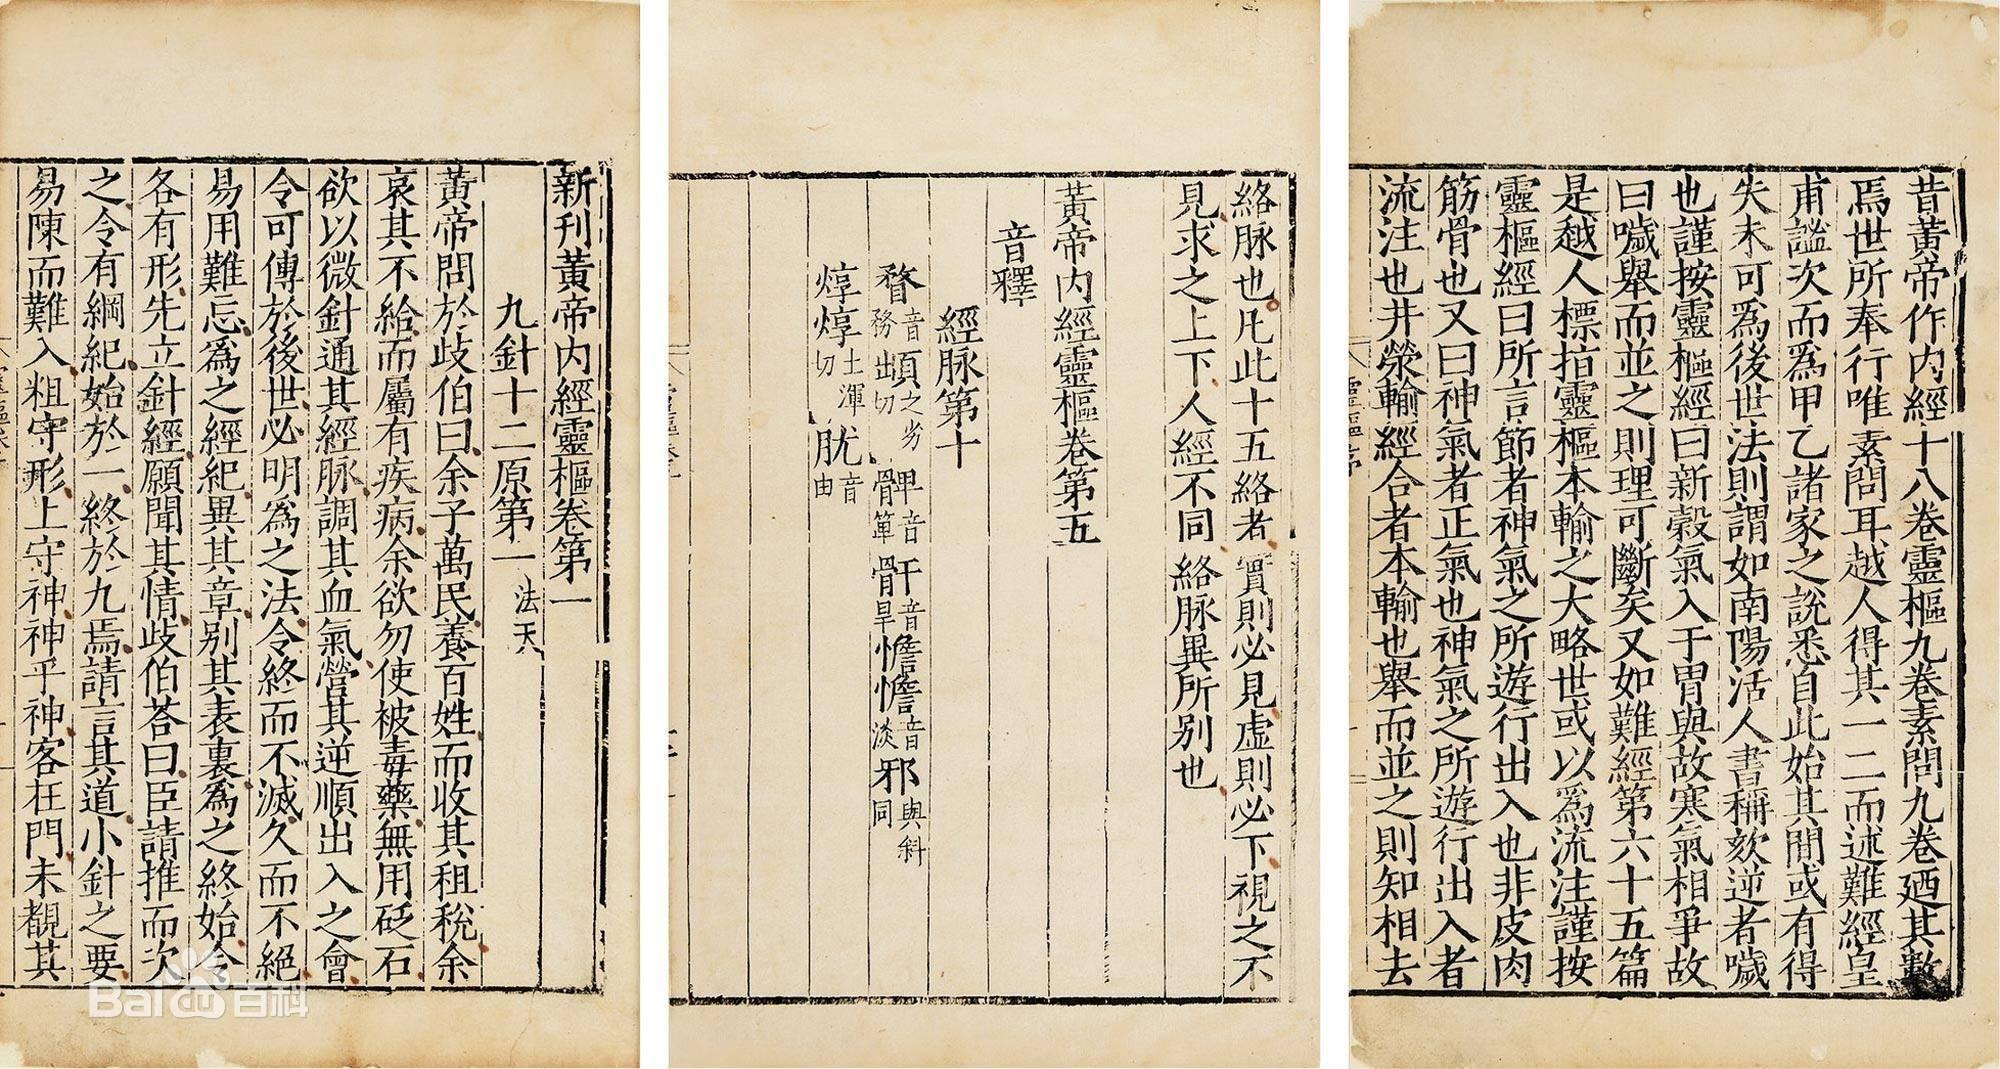 昔黃帝作內經十八卷靈樞九卷素問九卷廼其數
焉世所奉行唯素問耳越人得其一二而述難經皇
甫謐次而爲甲乙諸家之說悉自此始其間或有得
失未可爲後世法則謂如南陽活人書稱欬逆者噦
也謹按靈樞經曰新穀氣入于胃與故寒氣相爭故
曰噦舉而並之則理可斷矣又如難經第六十五篇
是越人標指靈樞本輸之大略世或以爲流注謹按
靈樞經曰所言節者神氣之所遊行出入也非皮肉
筋骨也又曰神氣者正氣也神氣之所遊行出入者
流注也井滎輸經合者本輸也舉而並之則知相去
絡脉也凡此十五絡者實則必見虛則必下視之不
見求之上下人經不同絡脉異所別也
黃帝內經靈樞卷第五
音釋
經脉第十
瞀音務䪼之劣切髀音箄骭音旱憺憺音淡邪與斜同
焞焞土渾切肬音由
新刊黃帝內經靈樞卷第一
九針十二原第一法天
黃帝問於歧伯曰余子萬民養百姓而收其租稅余
哀其不給而屬有疾病余欲勿使被毒藥無用砭石
欲以微針通其經脉調其血氣營其逆順出入之會
令可傳於後世必明爲之法令終而不滅久而不絕
易用難忘爲之經紀異其章別其表裏爲之終始令
各有形先立針經願聞其情歧伯荅曰臣請推而次
之令有綱紀始於一終於九焉請言其道小針之要
易陳而難入粗守形上守神神乎神客在門未覩其
Baidu百科